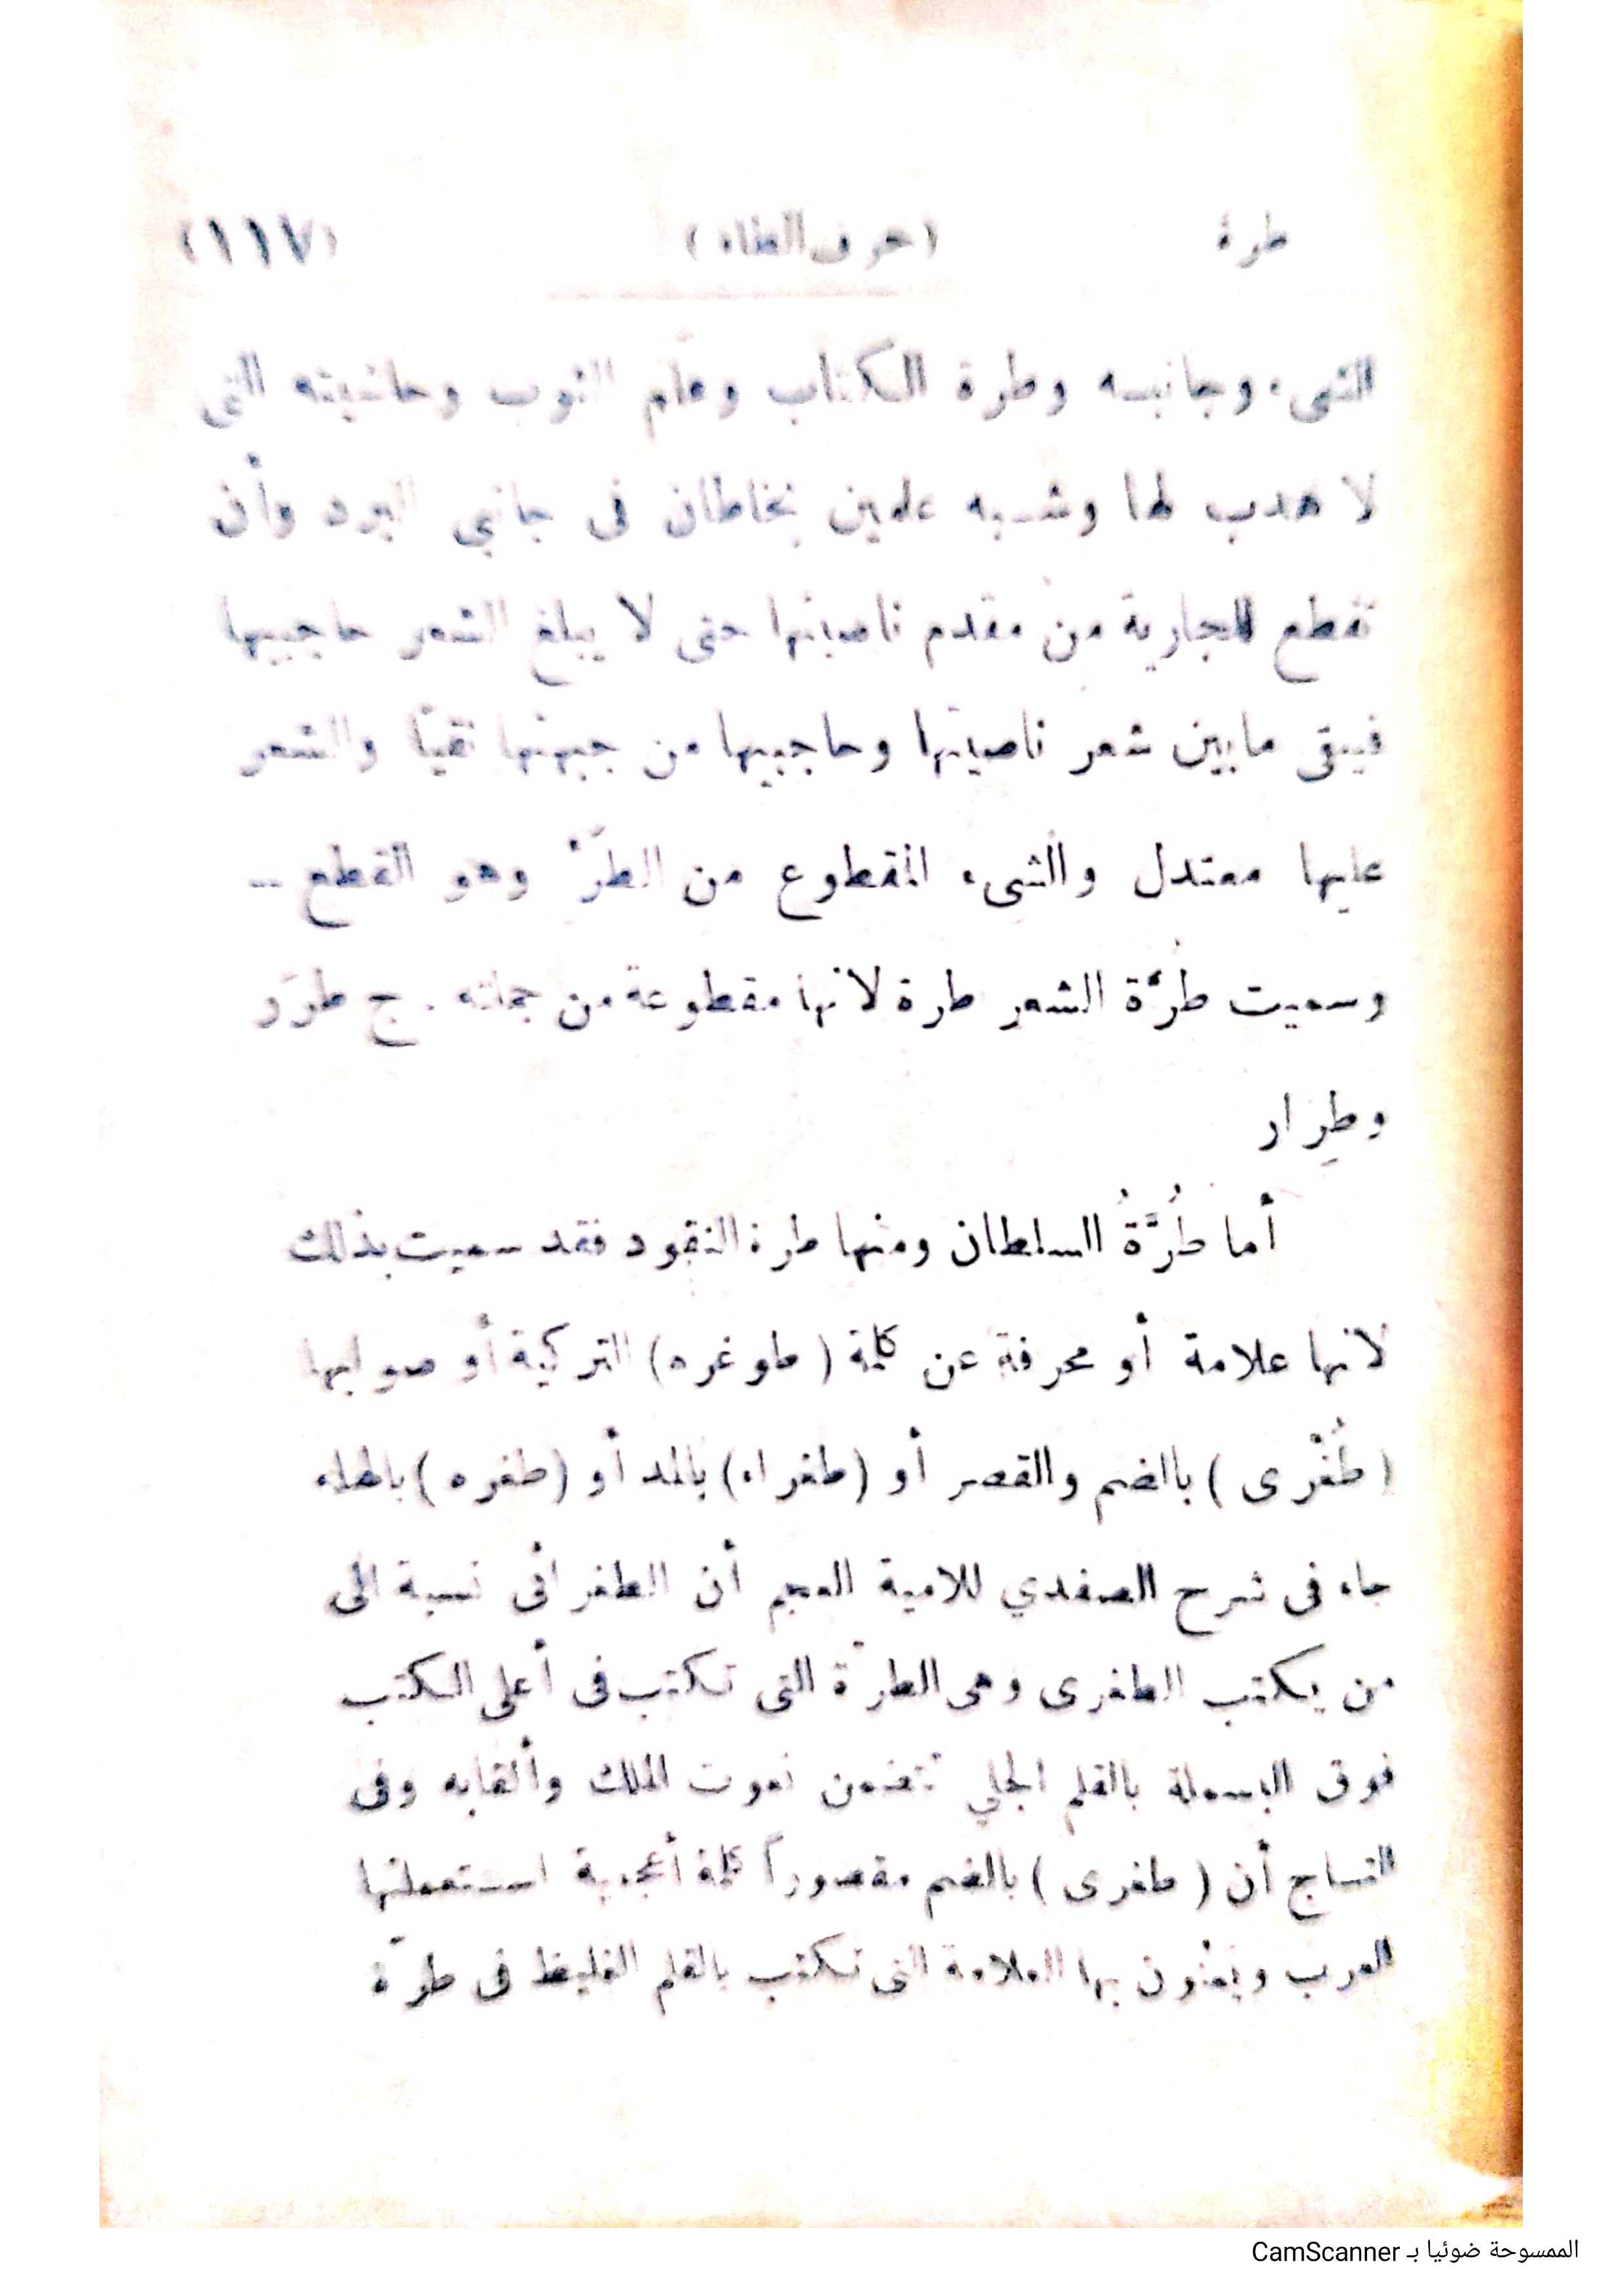 طرة (حرف الطاء) (١١٧)
الشيء وجانبه وطرة الكتاب وعلَم الثوب وحاشيته التى
لا هدب لها وشبه علمين يخاطان فى جانبي البرد وأن
تقطع للجارية من مقدم ناصيتها حتى لا يبلغ الشعر حاجبيها
فيبقى مابين شعر ناصيتها وحاجبيها من جبهتها نقيّا والشعر
عليها معتدل والشىء المقطوع من الطرّ وهو القطع —
وسميت طُرّة الشعر طرة لانها مقطوعة من جملته . ج طرَر
وطِرار
أما طُرَّةُ السلطان ومنها طرة النقود فقد سميت بذلك
لانها علامة أو محرفة عن كلمة ( طوغره) التركية أو صوابها
( طُغْرى ) بالضم والقصر أو (طغراء) بالمد أو (طغره ) بالهاء
جاء فى شرح الصفدي للامية العجم أن الطغرائى نسبة الى
من يكتب الطغرى وهى الطرّة التى تكتب فى أعلى الكتب
فوق البسملة بالقلم الجلي تتضمن نعوت الملك وألقابه وفى
التساج أن ( طغرى ) بالضم مقصوراً كلمة أعجمية استعملتها
العرب ويعنون بها العلامة التى تكتب بالقلم الغليظ فى طرّة
الممسوحة ضوئيا بـ CamScanner